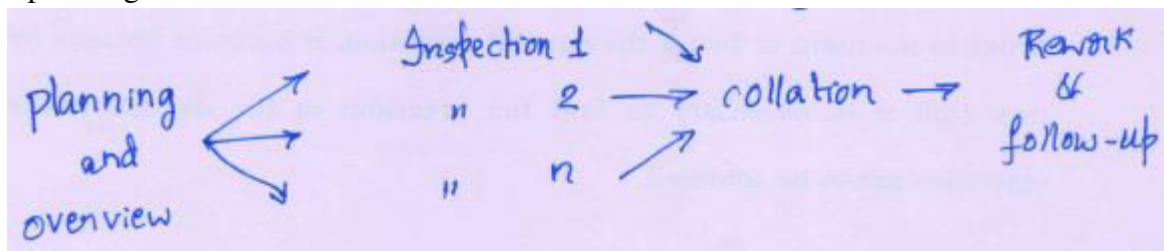 planning
and
overview
Inspection 1
" 2
" n
collation
Rework
&
follow-up